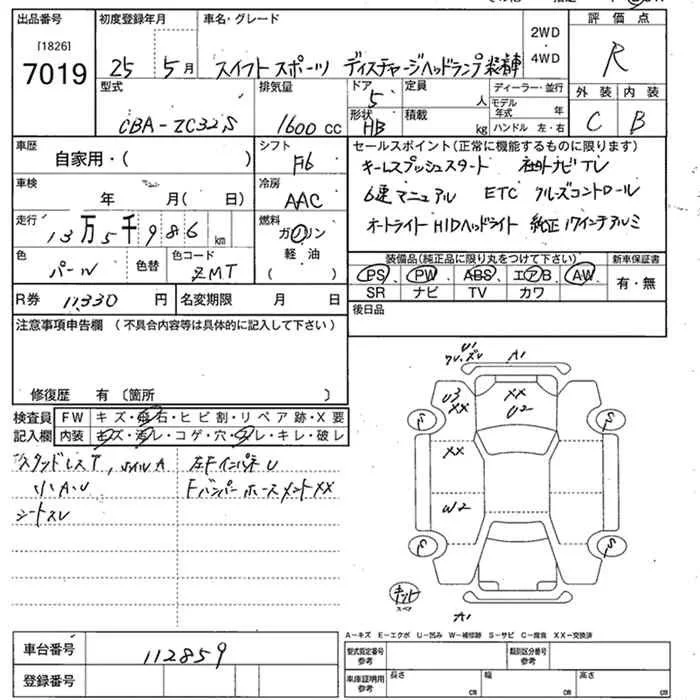 出品番号 初度登録年月 車名・グレード 2WD ・ 4WD 評価点
[1826]
7019 25 5月 スイフトスポーツ ディスチャージヘッドランプ装着車 R
型式 排気量 ドア 5 定員 人 ディーラー・並行 外装 内装
CBA-ZC32S 1600cc 形状 HB 積載 kg モデル年式 年 ハンドル 左・右 C B
車歴 自家用・( ) シフト F6 セールスポイント(正常に機能するものに限ります)
キーレスプッシュスタート 社外ナビTV
車検 年 月( 日) 冷房 AAC 6速マニュアル ETC クルーズコントロール
走行 13万5千986km 燃料 ガソリン 軽油 ( ) オートライト HIDヘッドライト 純正17インチアルミ
色 パール 色替 色コード ZMT 装備品(純正品に限り丸をつけて下さい) 新車保証書
PS、PW、ABS、エアB、AW 有・無
SR ナビ TV カワ
R券 11,330円 名変期限 月 日 後日品
注意事項申告欄(不具合内容等は具体的に記入して下さい)
修復歴 有〔箇所 〕
検査員記入欄 FW キズ・飛石・ヒビ割・リペア跡・X要
内装 キズ・汚レ・コゲ・穴・スレ・キレ・破レ
スタッドレスT、ホイルA 左FインパネU
小A・U FバンパーホースメントXX
シートスレ
U1 A1
U3 XX XX U2
S S
XX
W2
S S
スペア
A1
A-キズ E-エクボ U-凹み W-補修跡 S-サビ C-腐食 XX-交換済
車台番号 112859 型式指定番号 参考 類別区分番号 参考
登録番号 車庫証明用 参考 長さ cm 幅 cm 高さ cm